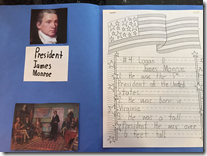 President
James
Monroe
#4 Logan D
James Monroe
He was the 5th
President of the United
States.
He was born in
Virginia.
He was a tall
President. He was over
6 feet tall.